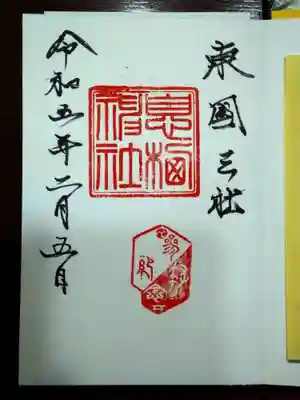 東國三社
息栖
神社
令和五年二月五日